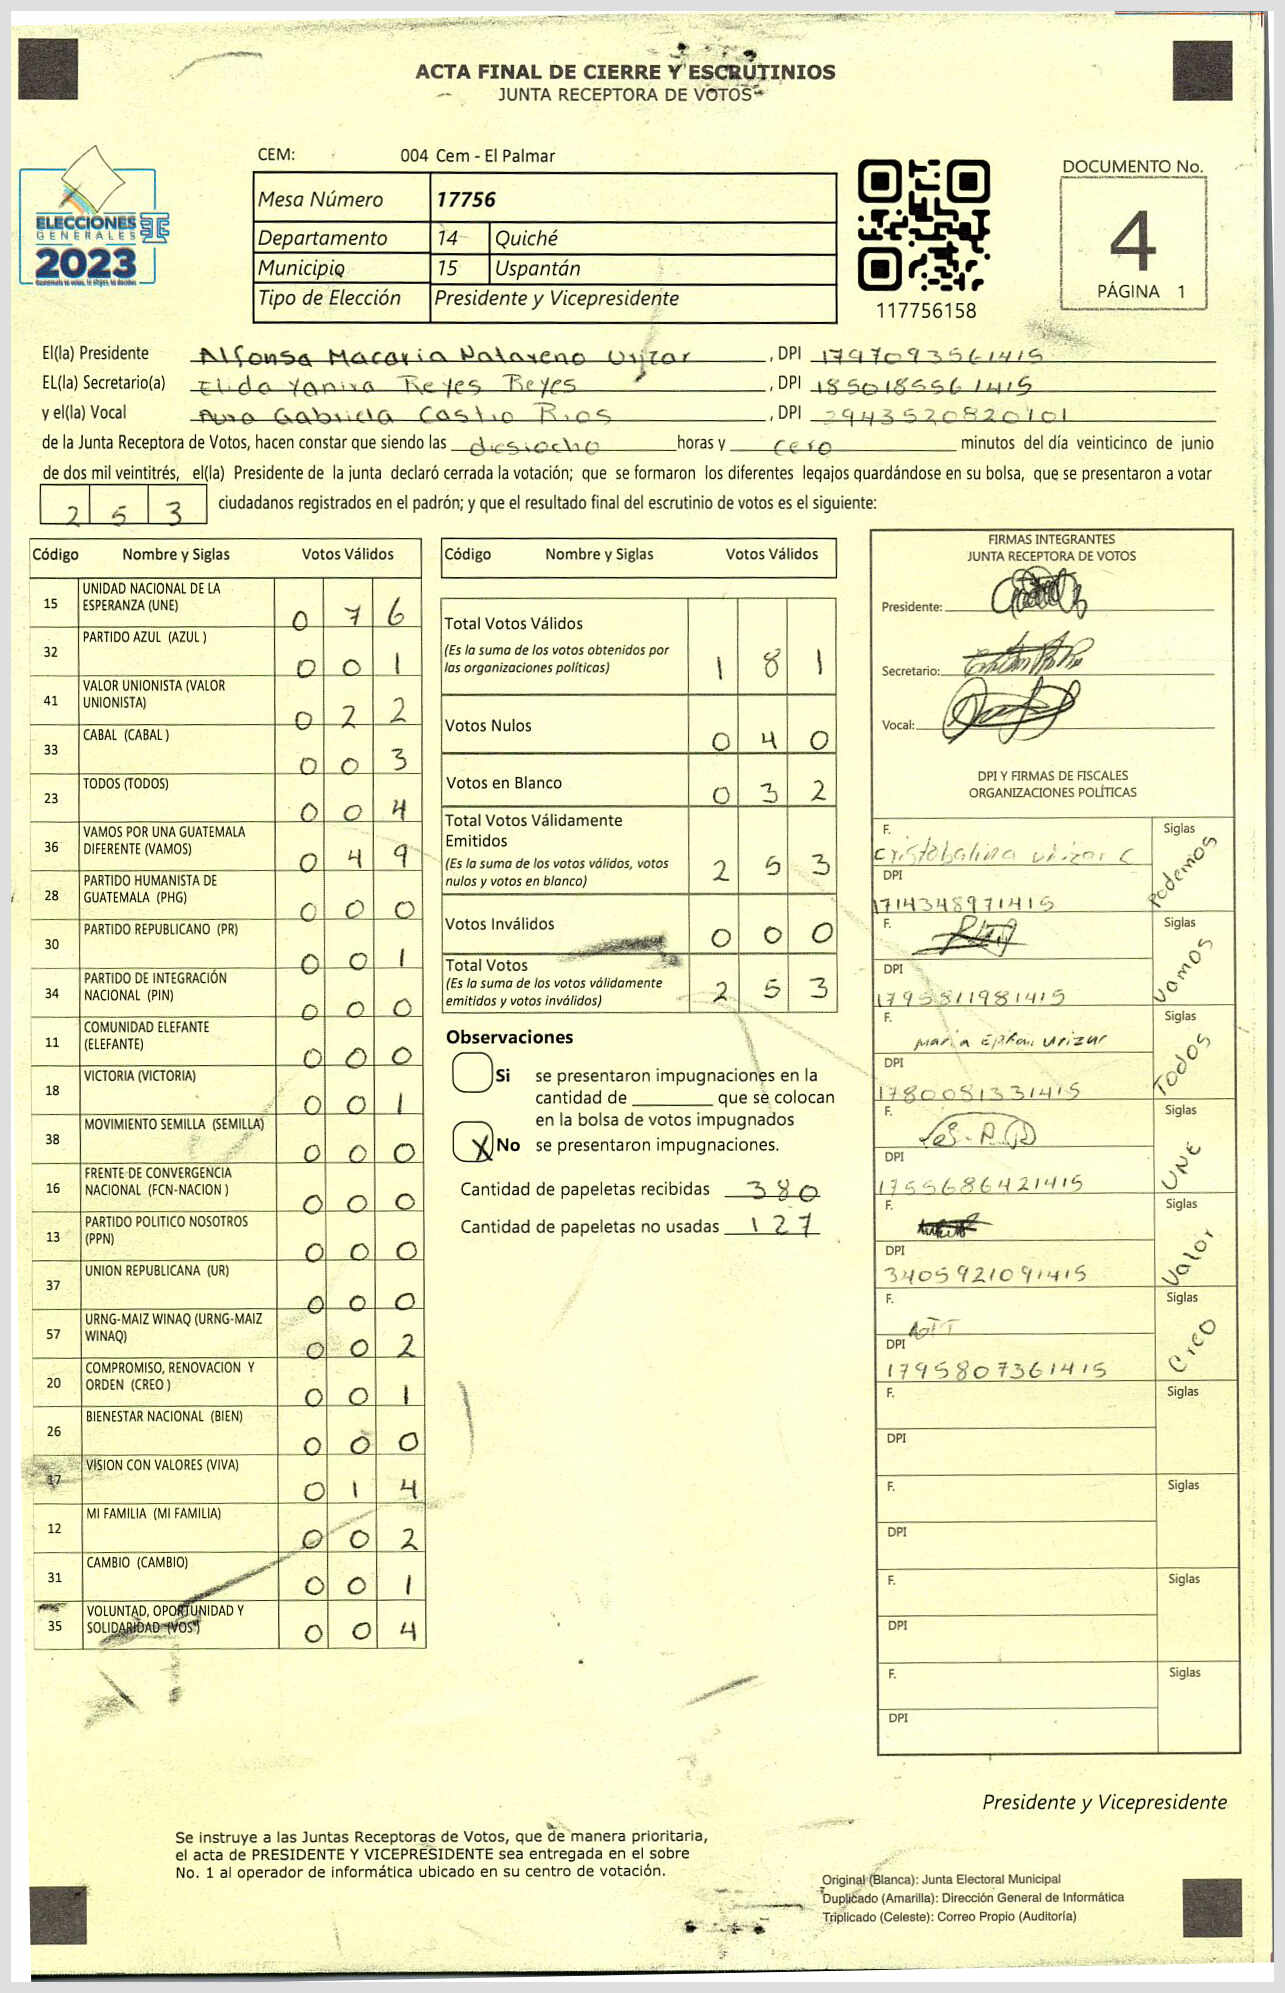 ACTA FINAL DE CIERRE Y ESCRUTINIOS
JUNTA RECEPTORA DE VOTOS
CEM: 004 Cem - El Palmar
DOCUMENTO No.
4
PÁGINA 1
ELECCIONES
GENERALES
2023
Mesa Número 17756
Departamento 14 Quiché
Municipio 15 Uspantán
Tipo de Elección Presidente y Vicepresidente
117756158
El(la) Presidente Alfonsa Macaria Natareno Urizar, DPI 1797093561415
EL(la) Secretario(a) Elida Yanira Reyes Reyes, DPI 1850185561415
y el(la) Vocal Ana Gabriela Castro Rios, DPI 2943520820101
de la Junta Receptora de Votos, hacen constar que siendo las desiocho horas y cero minutos del día veinticinco de junio
de dos mil veintitrés, el(la) Presidente de la junta declaró cerrada la votación; que se formaron los diferentes legajos guardándose en su bolsa, que se presentaron a votar
253 ciudadanos registrados en el padrón; y que el resultado final del escrutinio de votos es el siguiente:
Código Nombre y Siglas Votos Válidos
15 UNIDAD NACIONAL DE LA ESPERANZA (UNE) 0 7 6
32 PARTIDO AZUL (AZUL ) 0 0 1
41 VALOR UNIONISTA (VALOR UNIONISTA) 0 2 2
33 CABAL (CABAL ) 0 0 3
23 TODOS (TODOS) 0 0 4
36 VAMOS POR UNA GUATEMALA DIFERENTE (VAMOS) 0 4 9
28 PARTIDO HUMANISTA DE GUATEMALA (PHG) 0 0 0
30 PARTIDO REPUBLICANO (PR) 0 0 1
34 PARTIDO DE INTEGRACIÓN NACIONAL (PIN) 0 0 0
11 COMUNIDAD ELEFANTE (ELEFANTE) 0 0 0
18 VICTORIA (VICTORIA) 0 0 1
38 MOVIMIENTO SEMILLA (SEMILLA) 0 0 0
16 FRENTE DE CONVERGENCIA NACIONAL (FCN-NACION ) 0 0 0
13 PARTIDO POLITICO NOSOTROS (PPN) 0 0 0
37 UNION REPUBLICANA (UR) 0 0 0
57 URNG-MAIZ WINAQ (URNG-MAIZ WINAQ) 0 0 2
20 COMPROMISO, RENOVACION Y ORDEN (CREO ) 0 0 1
26 BIENESTAR NACIONAL (BIEN) 0 0 0
17 VISION CON VALORES (VIVA) 0 1 4
12 MI FAMILIA (MI FAMILIA) 0 0 2
31 CAMBIO (CAMBIO) 0 0 1
35 VOLUNTAD, OPORTUNIDAD Y SOLIDARIDAD (VOS) 0 0 4
Código Nombre y Siglas Votos Válidos
Total Votos Válidos
(Es la suma de los votos obtenidos por
las organizaciones políticas) 1 8 1
Votos Nulos 0 4 0
Votos en Blanco 0 3 2
Total Votos Válidamente
Emitidos
(Es la suma de los votos válidos, votos
nulos y votos en blanco) 2 5 3
Votos Inválidos 0 0 0
Total Votos
(Es la suma de los votos válidamente
emitidos y votos inválidos) 2 5 3
Observaciones
Si se presentaron impugnaciones en la
cantidad de ________ que se colocan
en la bolsa de votos impugnados
X No se presentaron impugnaciones.
Cantidad de papeletas recibidas 380
Cantidad de papeletas no usadas 127
FIRMAS INTEGRANTES
JUNTA RECEPTORA DE VOTOS
Presidente:
Secretario:
Vocal:
DPI Y FIRMAS DE FISCALES
ORGANIZACIONES POLÍTICAS
F. Cristobalina Urizar C Siglas Podemos
DPI
1714348971415
F. Siglas Vamos
DPI
1795811981415
F. Maria Urizar Siglas Todos
DPI
1780081331415
F. Siglas UNE
DPI
1755686421415
F. Siglas Valor
DPI
3405921091415
F. Siglas Creo
DPI
1795807361415
F. Siglas
DPI
F. Siglas
DPI
F. Siglas
DPI
F. Siglas
DPI
Presidente y Vicepresidente
Se instruye a las Juntas Receptoras de Votos, que de manera prioritaria,
el acta de PRESIDENTE Y VICEPRESIDENTE sea entregada en el sobre
No. 1 al operador de informática ubicado en su centro de votación.
Original (Blanca): Junta Electoral Municipal
Duplicado (Amarilla): Dirección General de Informática
Triplicado (Celeste): Correo Propio (Auditoría)